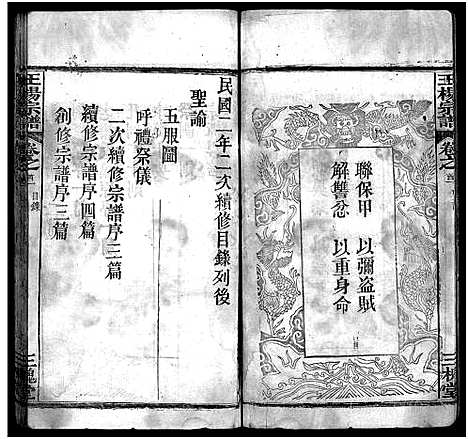 聯保甲 以彌盜賊
解讐忿 以重身命
民國二年二次續修目錄列後
聖諭
五服圖
呼禮祭儀
二次續修宗譜序三篇
續修宗譜序四篇
創修宗譜序三篇
王楊宗譜
卷之首
目錄
三槐堂
王楊宗譜
卷之首
三槐堂